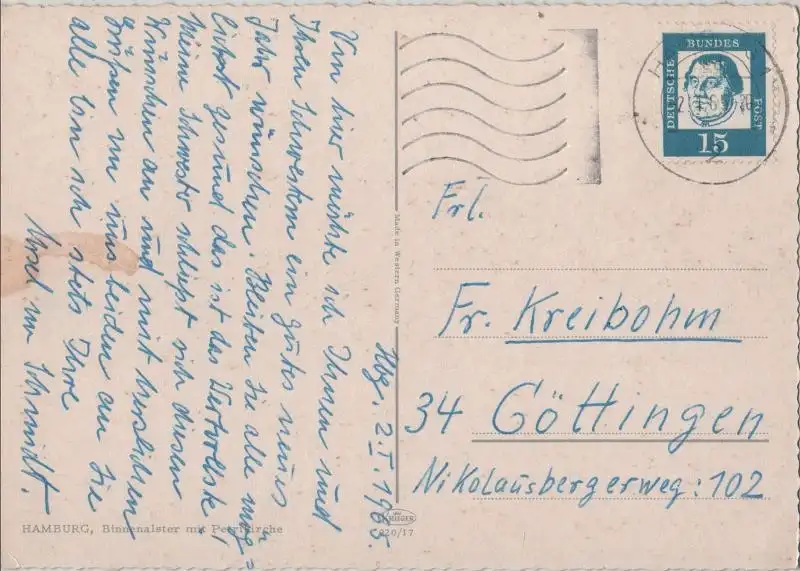 Hbg. 2.I.1965.
Von hier möchte ich Ihnen und
Ihren Schwestern ein gutes neues
Jahr wünschen. Bleiben Sie alle mög=
lichst gesund das ist das Wertvollste!
Meine Schwester schließt sich diesen
Wünschen an und mit herzlichen
Grüßen von uns beiden an Sie
alle bin ich stets Ihre
Ursel von Schmidt.
HAMBURG, Binnenalster mit Petrikirche
Made in Western Germany
KRÜGER
920/17
DEUTSCHE BUNDES POST
15
Frl.
Fr. Kreibohm
34 Göttingen
Nikolausbergerweg: 102